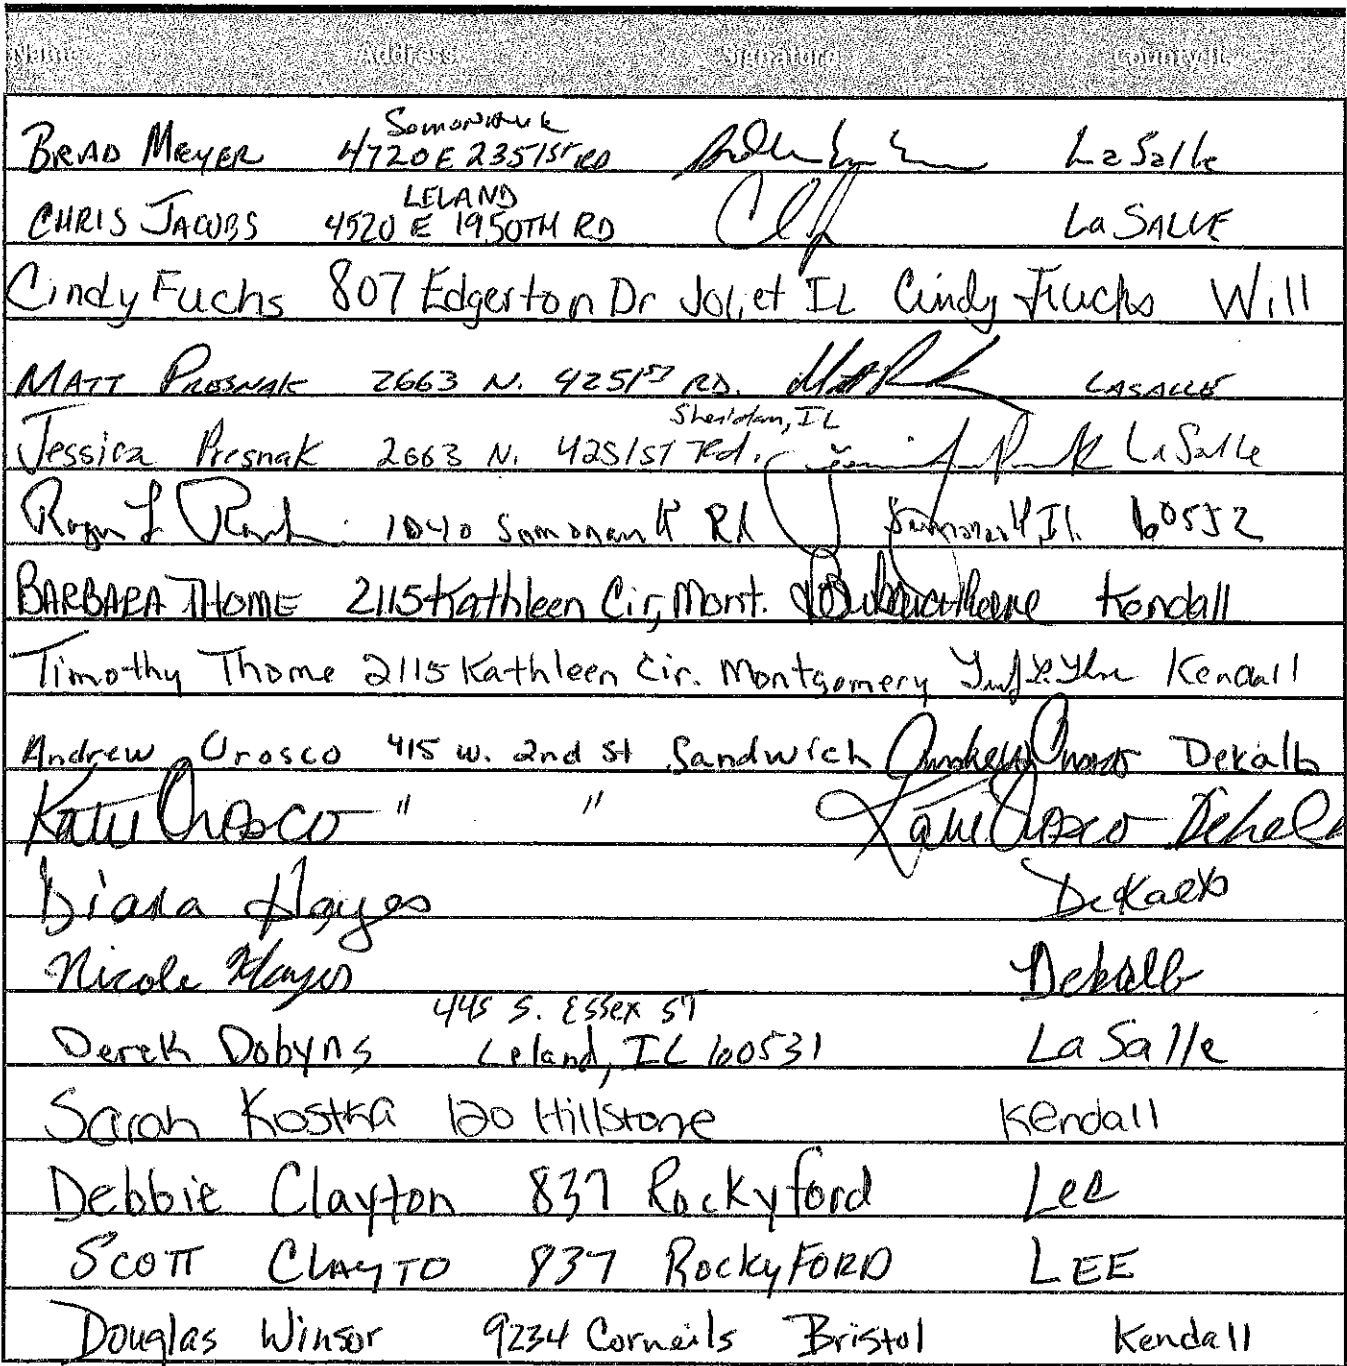 Name Address Signature County/IL
BRAD MEYER Somonauk 4720 E 2351ST RD LaSalle
CHRIS JACOBS LELAND 4520 E 1950TH RD LaSALLE
Cindy Fuchs 807 Edgerton Dr Joliet IL Cindy Fuchs Will
MATT PRESNAK 2663 N. 4251ST RD. LASALLE
Sheridan, IL
Jessica Presnak 2663 N. 4251ST Rd. LaSalle
1040 Somonauk Rd Somonauk IL 60552
BARBARA THOME 2115 Kathleen Cir, Mont. Barbara Thome Kendall
Timothy Thome 2115 Kathleen Cir. Montgomery Kendall
Andrew Orosco 415 w. 2nd St Sandwich Andrew Orosco Dekalb
Katie Orosco " " Katie Orosco Dekalb
Diana Hayes DeKalb
Nicole Hayes Dekalb
445 S. Essex ST
Derek Dobyns Leland, IL 60531 La Salle
Sarah Kostka 120 Hillstone Kendall
Debbie Clayton 837 Rockyford Lee
SCOTT CLAYTO 837 ROCKYFORD LEE
Douglas Winsor 9234 Corneils Bristol Kendall